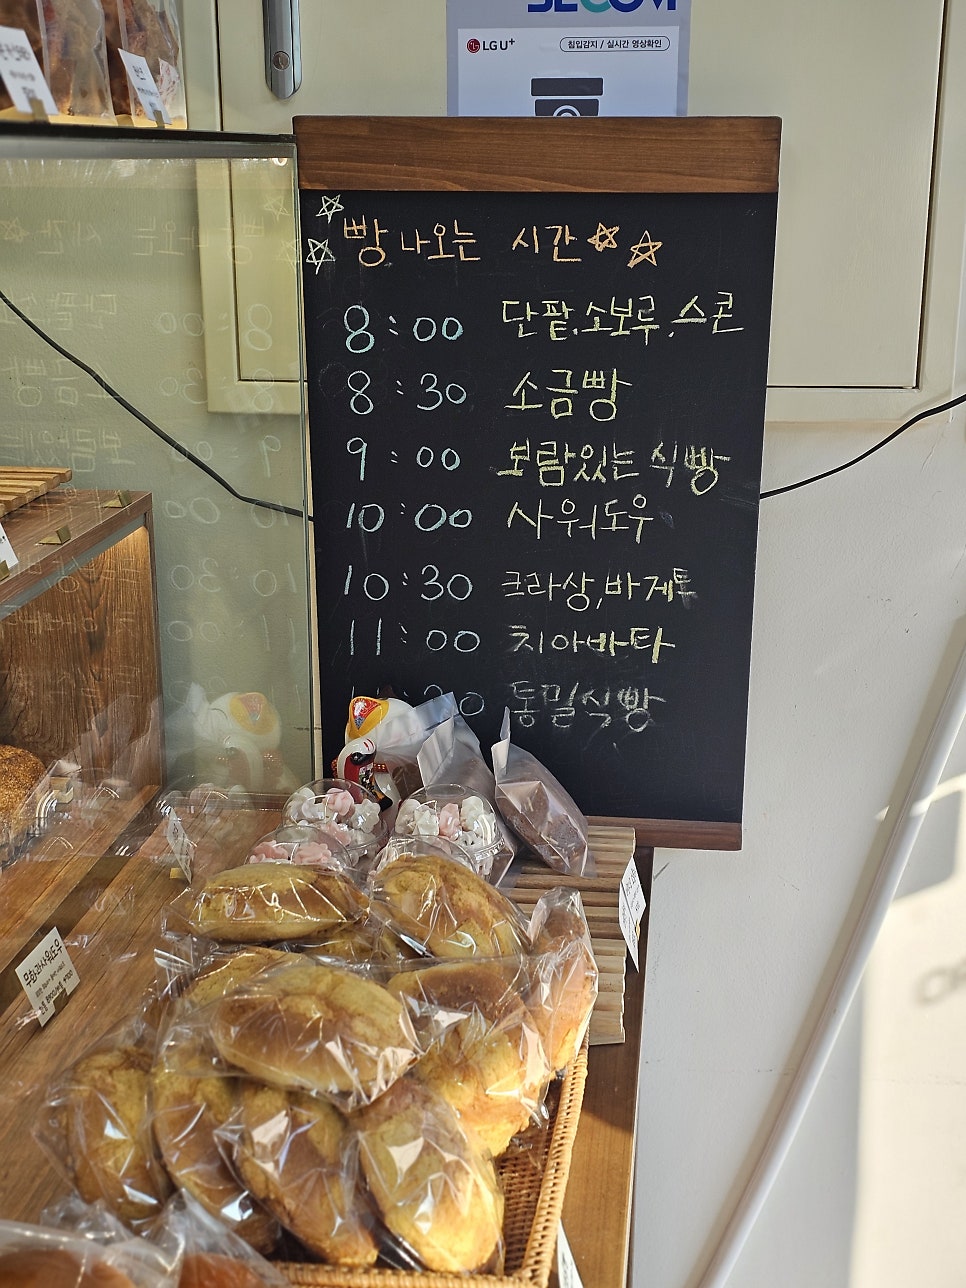 SECOM
LG U+
침입감지 / 실시간 영상확인
빵 나오는 시간
8:00 단팥,소보루,스콘
8:30 소금빵
9:00 보람있는 식빵
10:00 사워도우
10:30 크라상,바게트
11:00 치아바타
통밀식빵
무화과사워도우